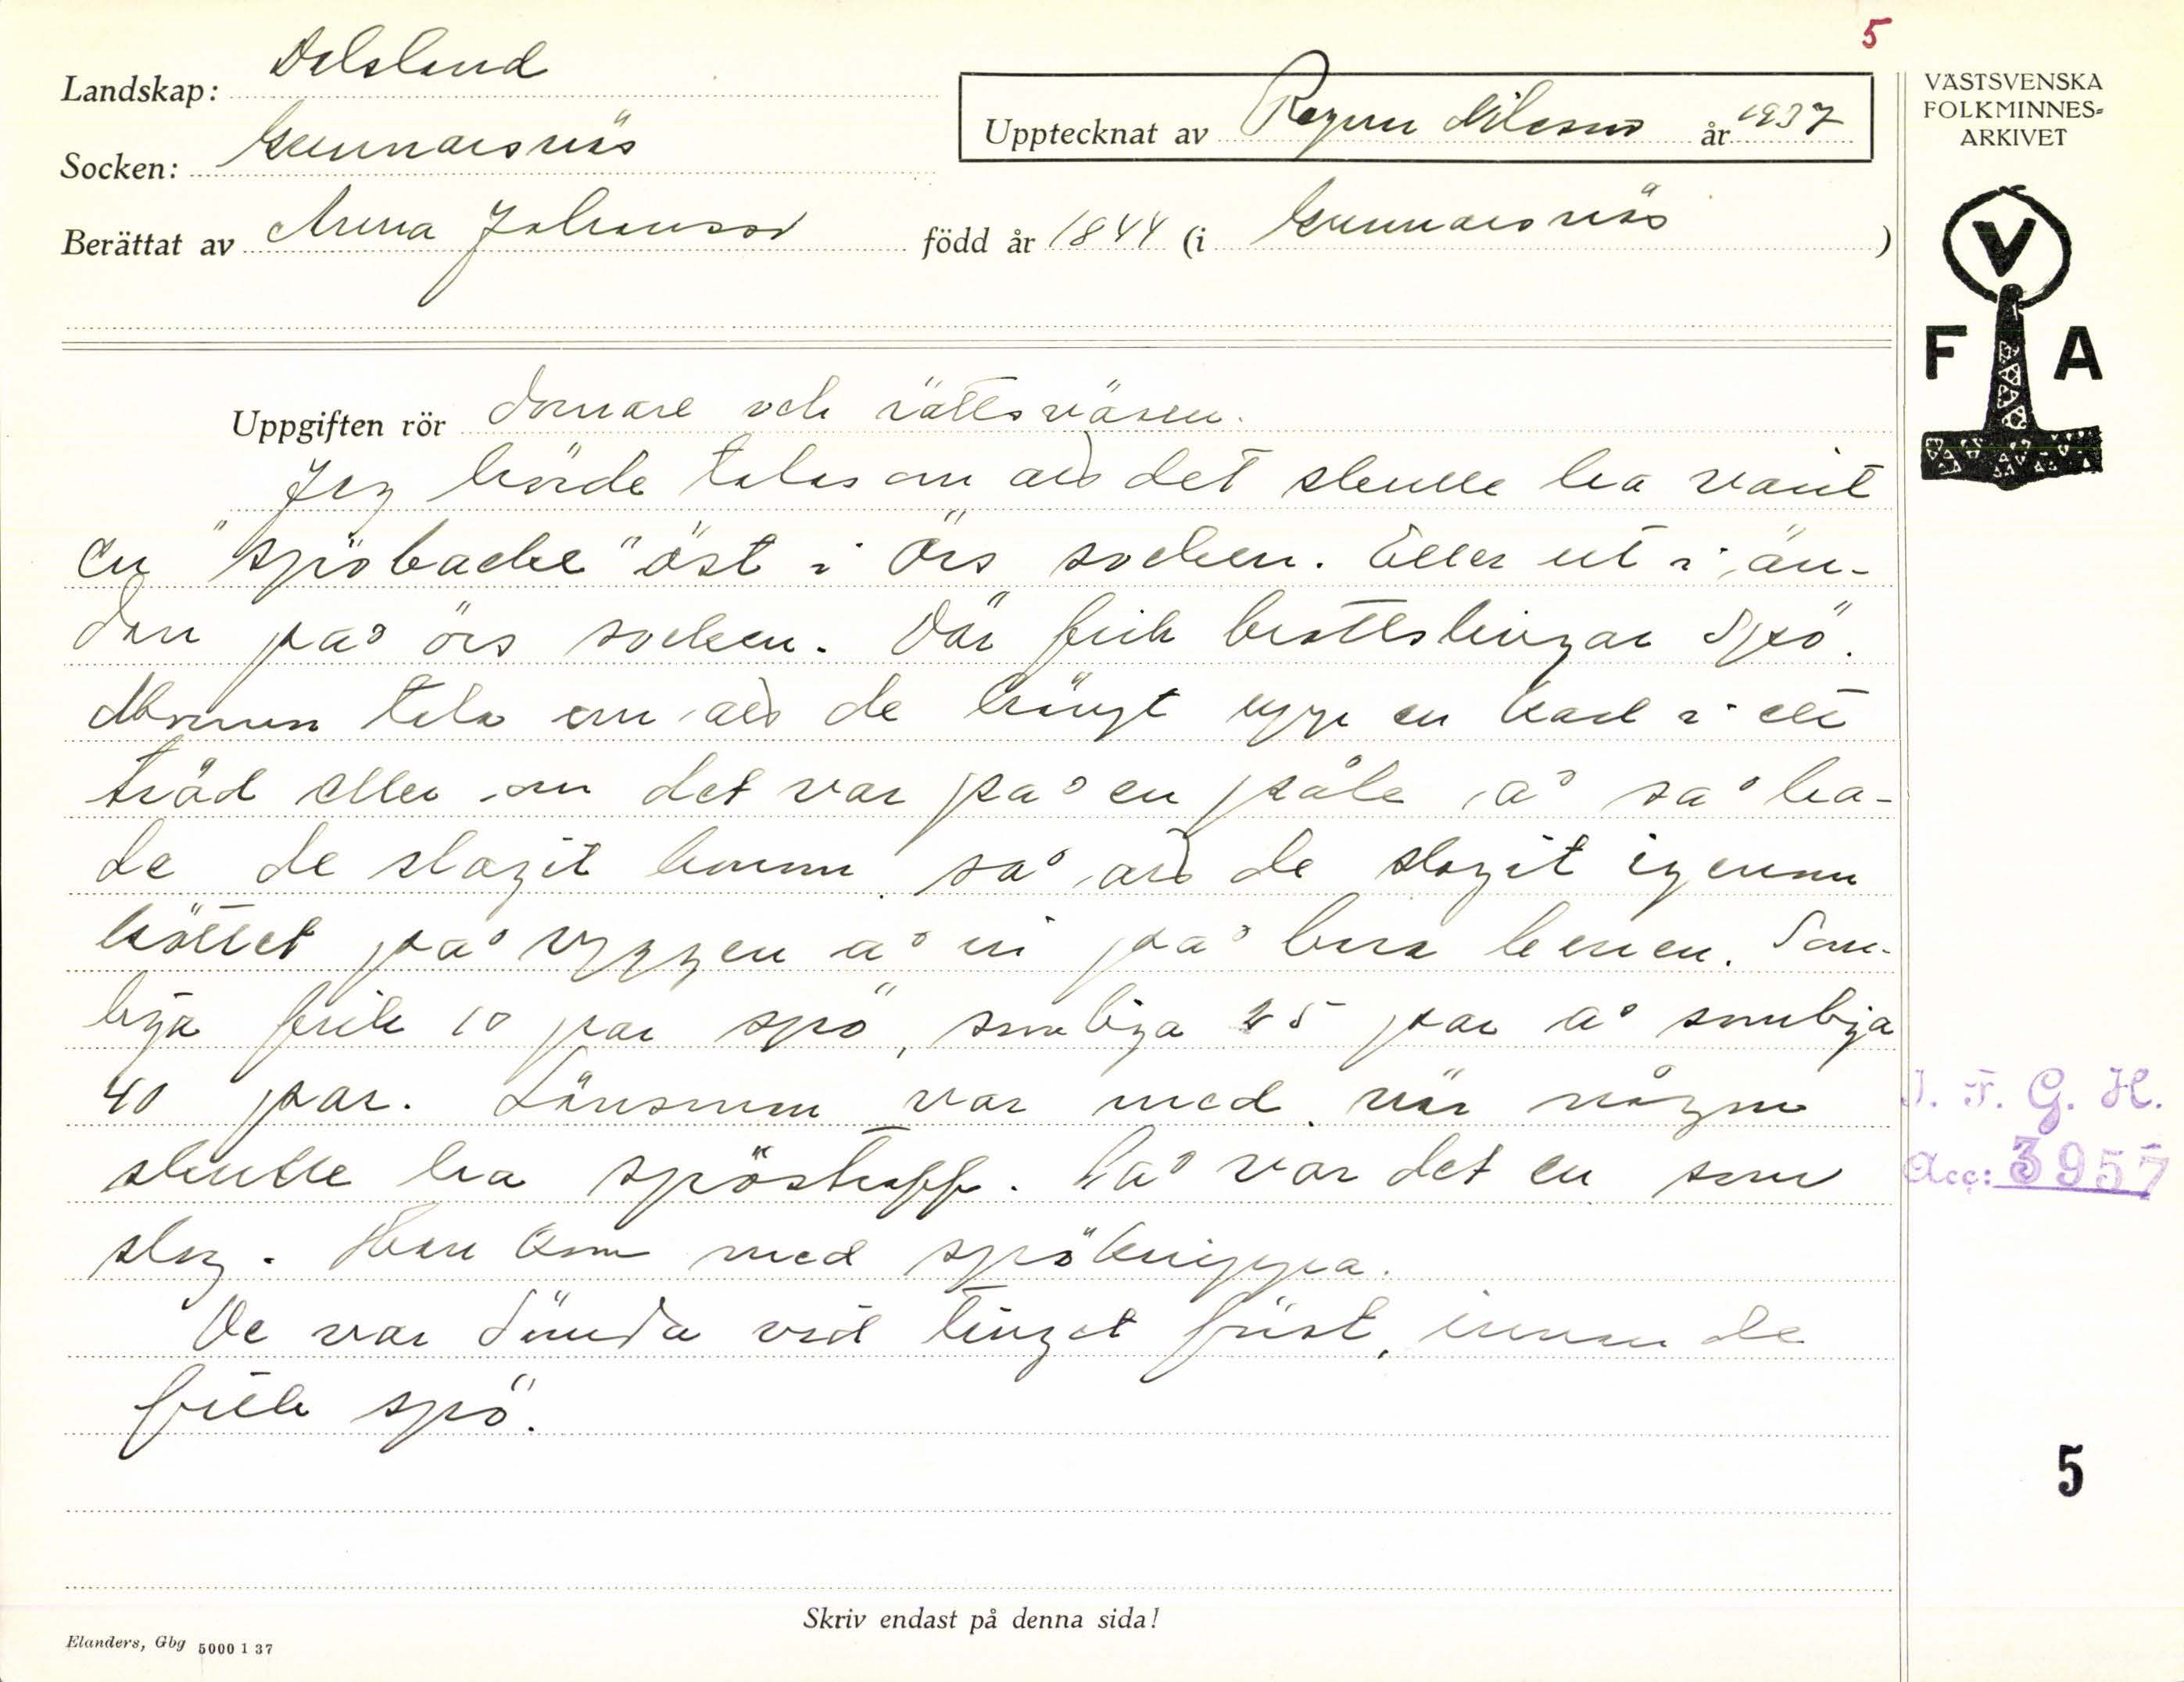 5
Landskap: Dalsland
Socken: Gunnarsnäs
Upptecknat av Ragnar Nilsson år 1937
Berättat av Anna Johansson född år 1844 (i Gunnarsnäs)
VÄSTSVENSKA
FOLKMINNES=
ARKIVET
V
F A
Uppgiften rör domare och rättsväsen.
Jag hörde talas om att det skulle ha varit
en "spöbacke" öst i Örs socken. Eller ut i än-
dan på örs socken. Där fick brottslingar spö.
Mormor tala om att de hängt upp en karl i ett
träd eller om det var på en påle, å så ha-
de de slagit honom så att de slagit igenom
köttet på ryggen å in på bara benen. Som-
liga fick 10 par spö, somliga 25 par å somliga
40 par. Länsman var med när någon
skulle ha spöstraff. Så var det en som
slog. Han kom med spöknippa.
De var dömda vid tinget först, innan de
fick spö.
I. F. G. H.
Acc: 3957
5
Skriv endast på denna sida!
Elanders, Gbg 5000 1 37